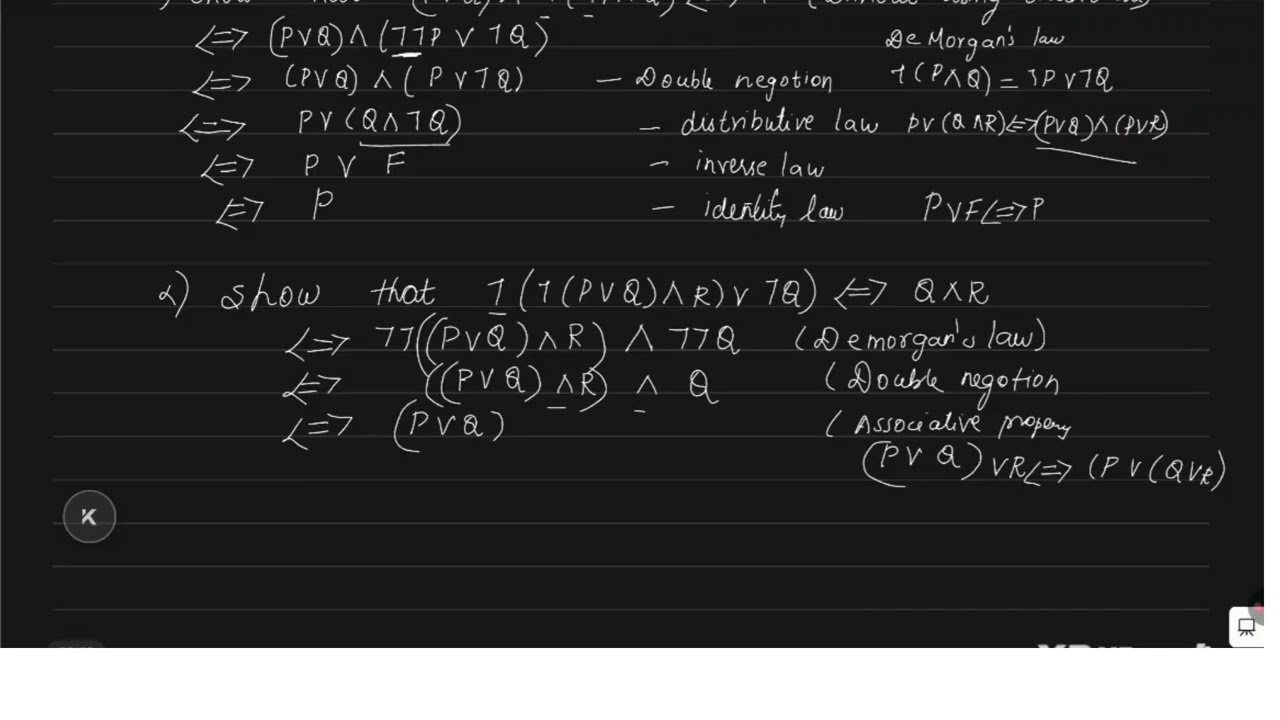 ⇔ (P∨Q)∧(77P ∨ 7Q) De Morgan's law
⇔ (P∨Q) ∧ (P∨7Q) — Double negotion 7(P∧Q) = 7P∨7Q
⇔ P∨(Q∧7Q) — distributive law P∨(Q∧R)⇔(P∨Q)∧(P∨R)
⇔ P ∨ F — inverse law
⇔ P — identity law P∨F⇔P
2) show that 7(7(P∨Q)∧R)∨7Q) ⇔ Q∧R
⇔ 77((P∨Q)∧R) ∧ 77Q (Demorgan's law)
⇔ ((P∨Q)∧R) ∧ Q (Double negotion
⇔ (P∨Q) (Associative propery
(P∨Q)∨R⇔(P∨(Q∨R)
K